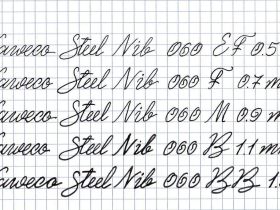 aweco Steel Nib 060 EF 0.5
aweco Steel Nib 060 F 0.7 m
aweco Steel Nib 060 M 0.9 m
aweco Steel Nib 060 B 1.1 m
aweco Steel Nib 060 BB 1.